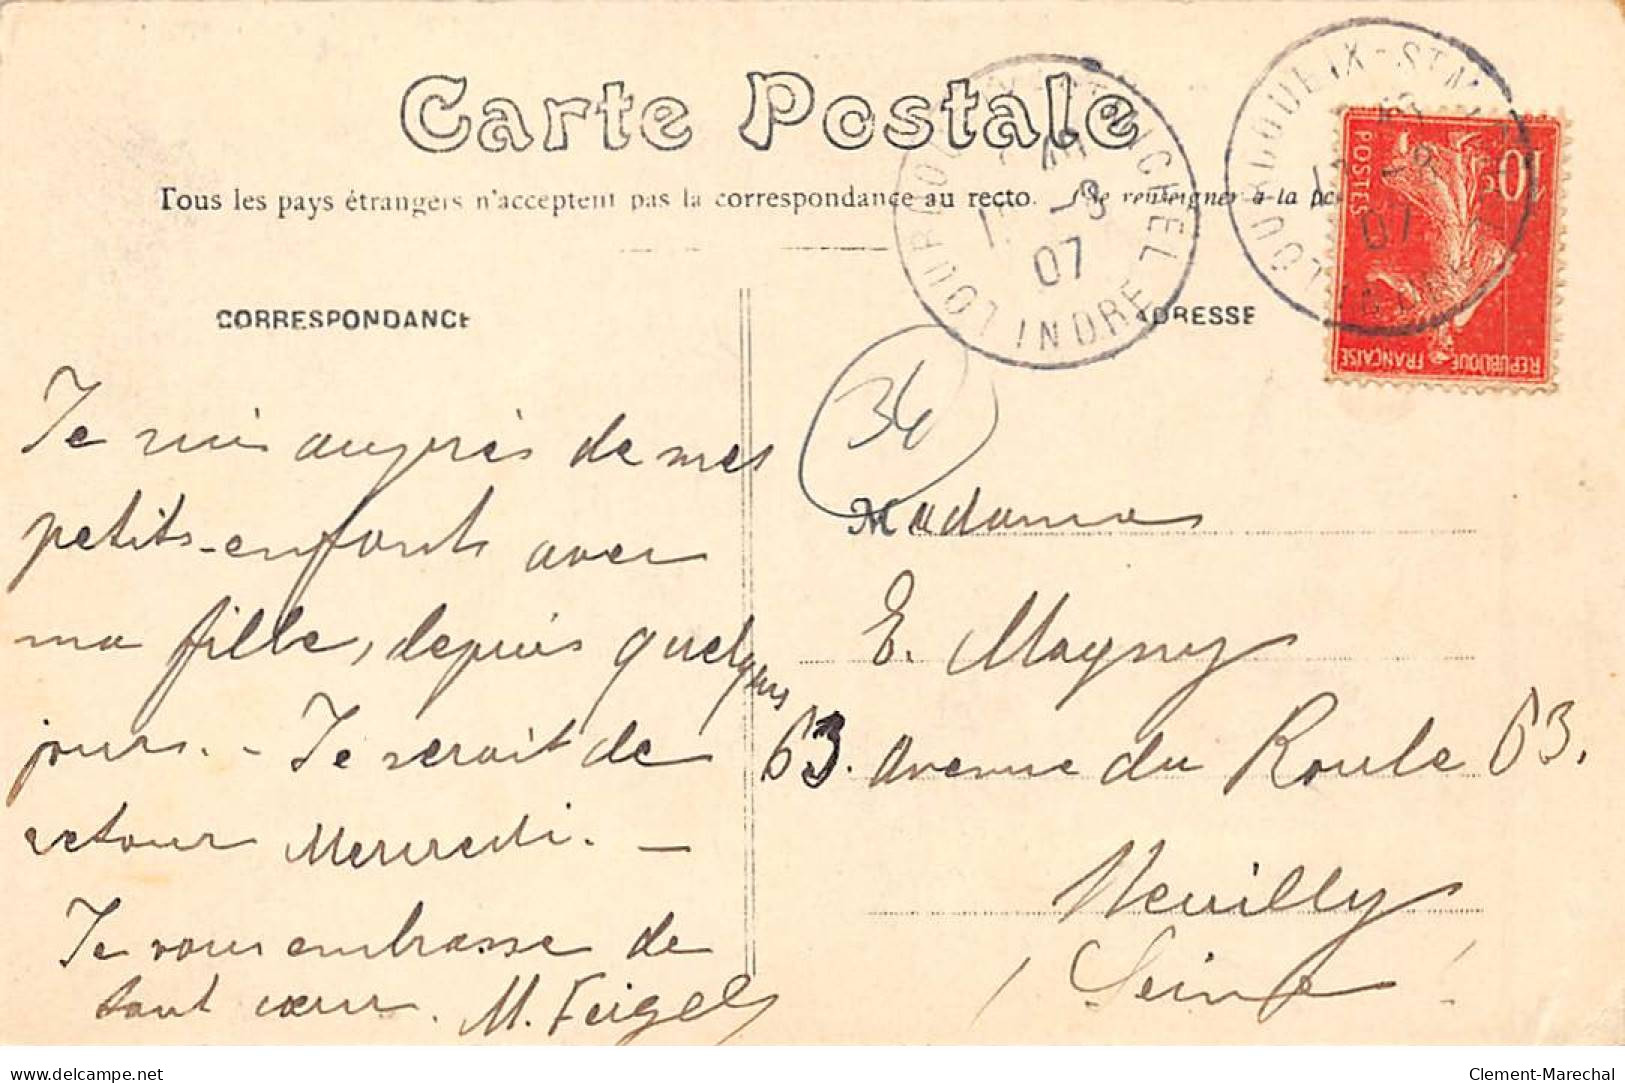 Carte Postale
Tous les pays étrangers n'acceptent pas la correspondance au recto. (Se renseigner à la
LOURDOUEIX-ST MICHEL
-8
07
INDRE
LOURDOUEIX-ST MICHEL
-8
07
INDRE
10
POSTES
REPUBLIQUE FRANÇAISE
CORRESPONDANCE
ADRESSE
34
Je suis auprès de mes
petits-enfants avec
ma fille, depuis quelques
jours. - Je serait de
retour Mercredi. -
Je vous embrasse de
tout cœur. M. Feigel
Madame
E. Magny
63. avenue du Roule 63.
Neuilly
Seine
delcampe.net
Clement-Marechal